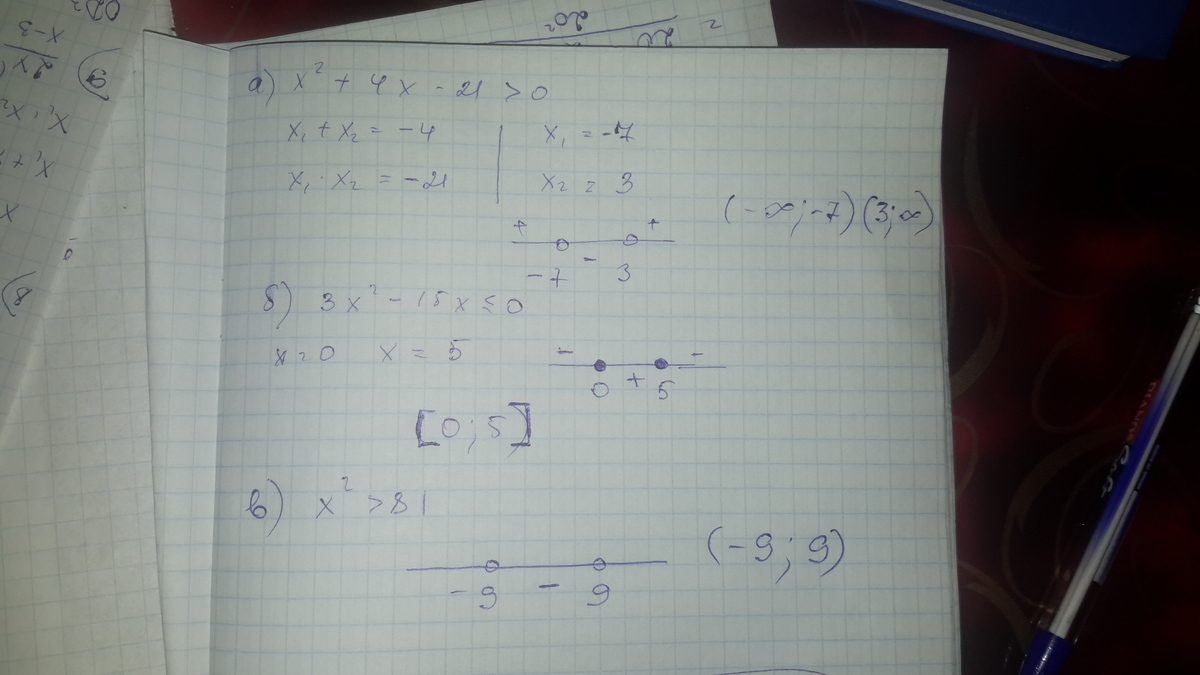 а) x² + 4x - 21 > 0
x₁ + x₂ = -4
x₁ · x₂ = -21
x₁ = -7
x₂ = 3
+ - +
-7 3
(-∞; -7) (3; ∞)
б) 3x² - 15x ≤ 0
x = 0 x = 5
- + -
0 5
[0; 5]
в) x² > 81
-9 - 9
(-9; 9)
9)
x-3
8)
20²